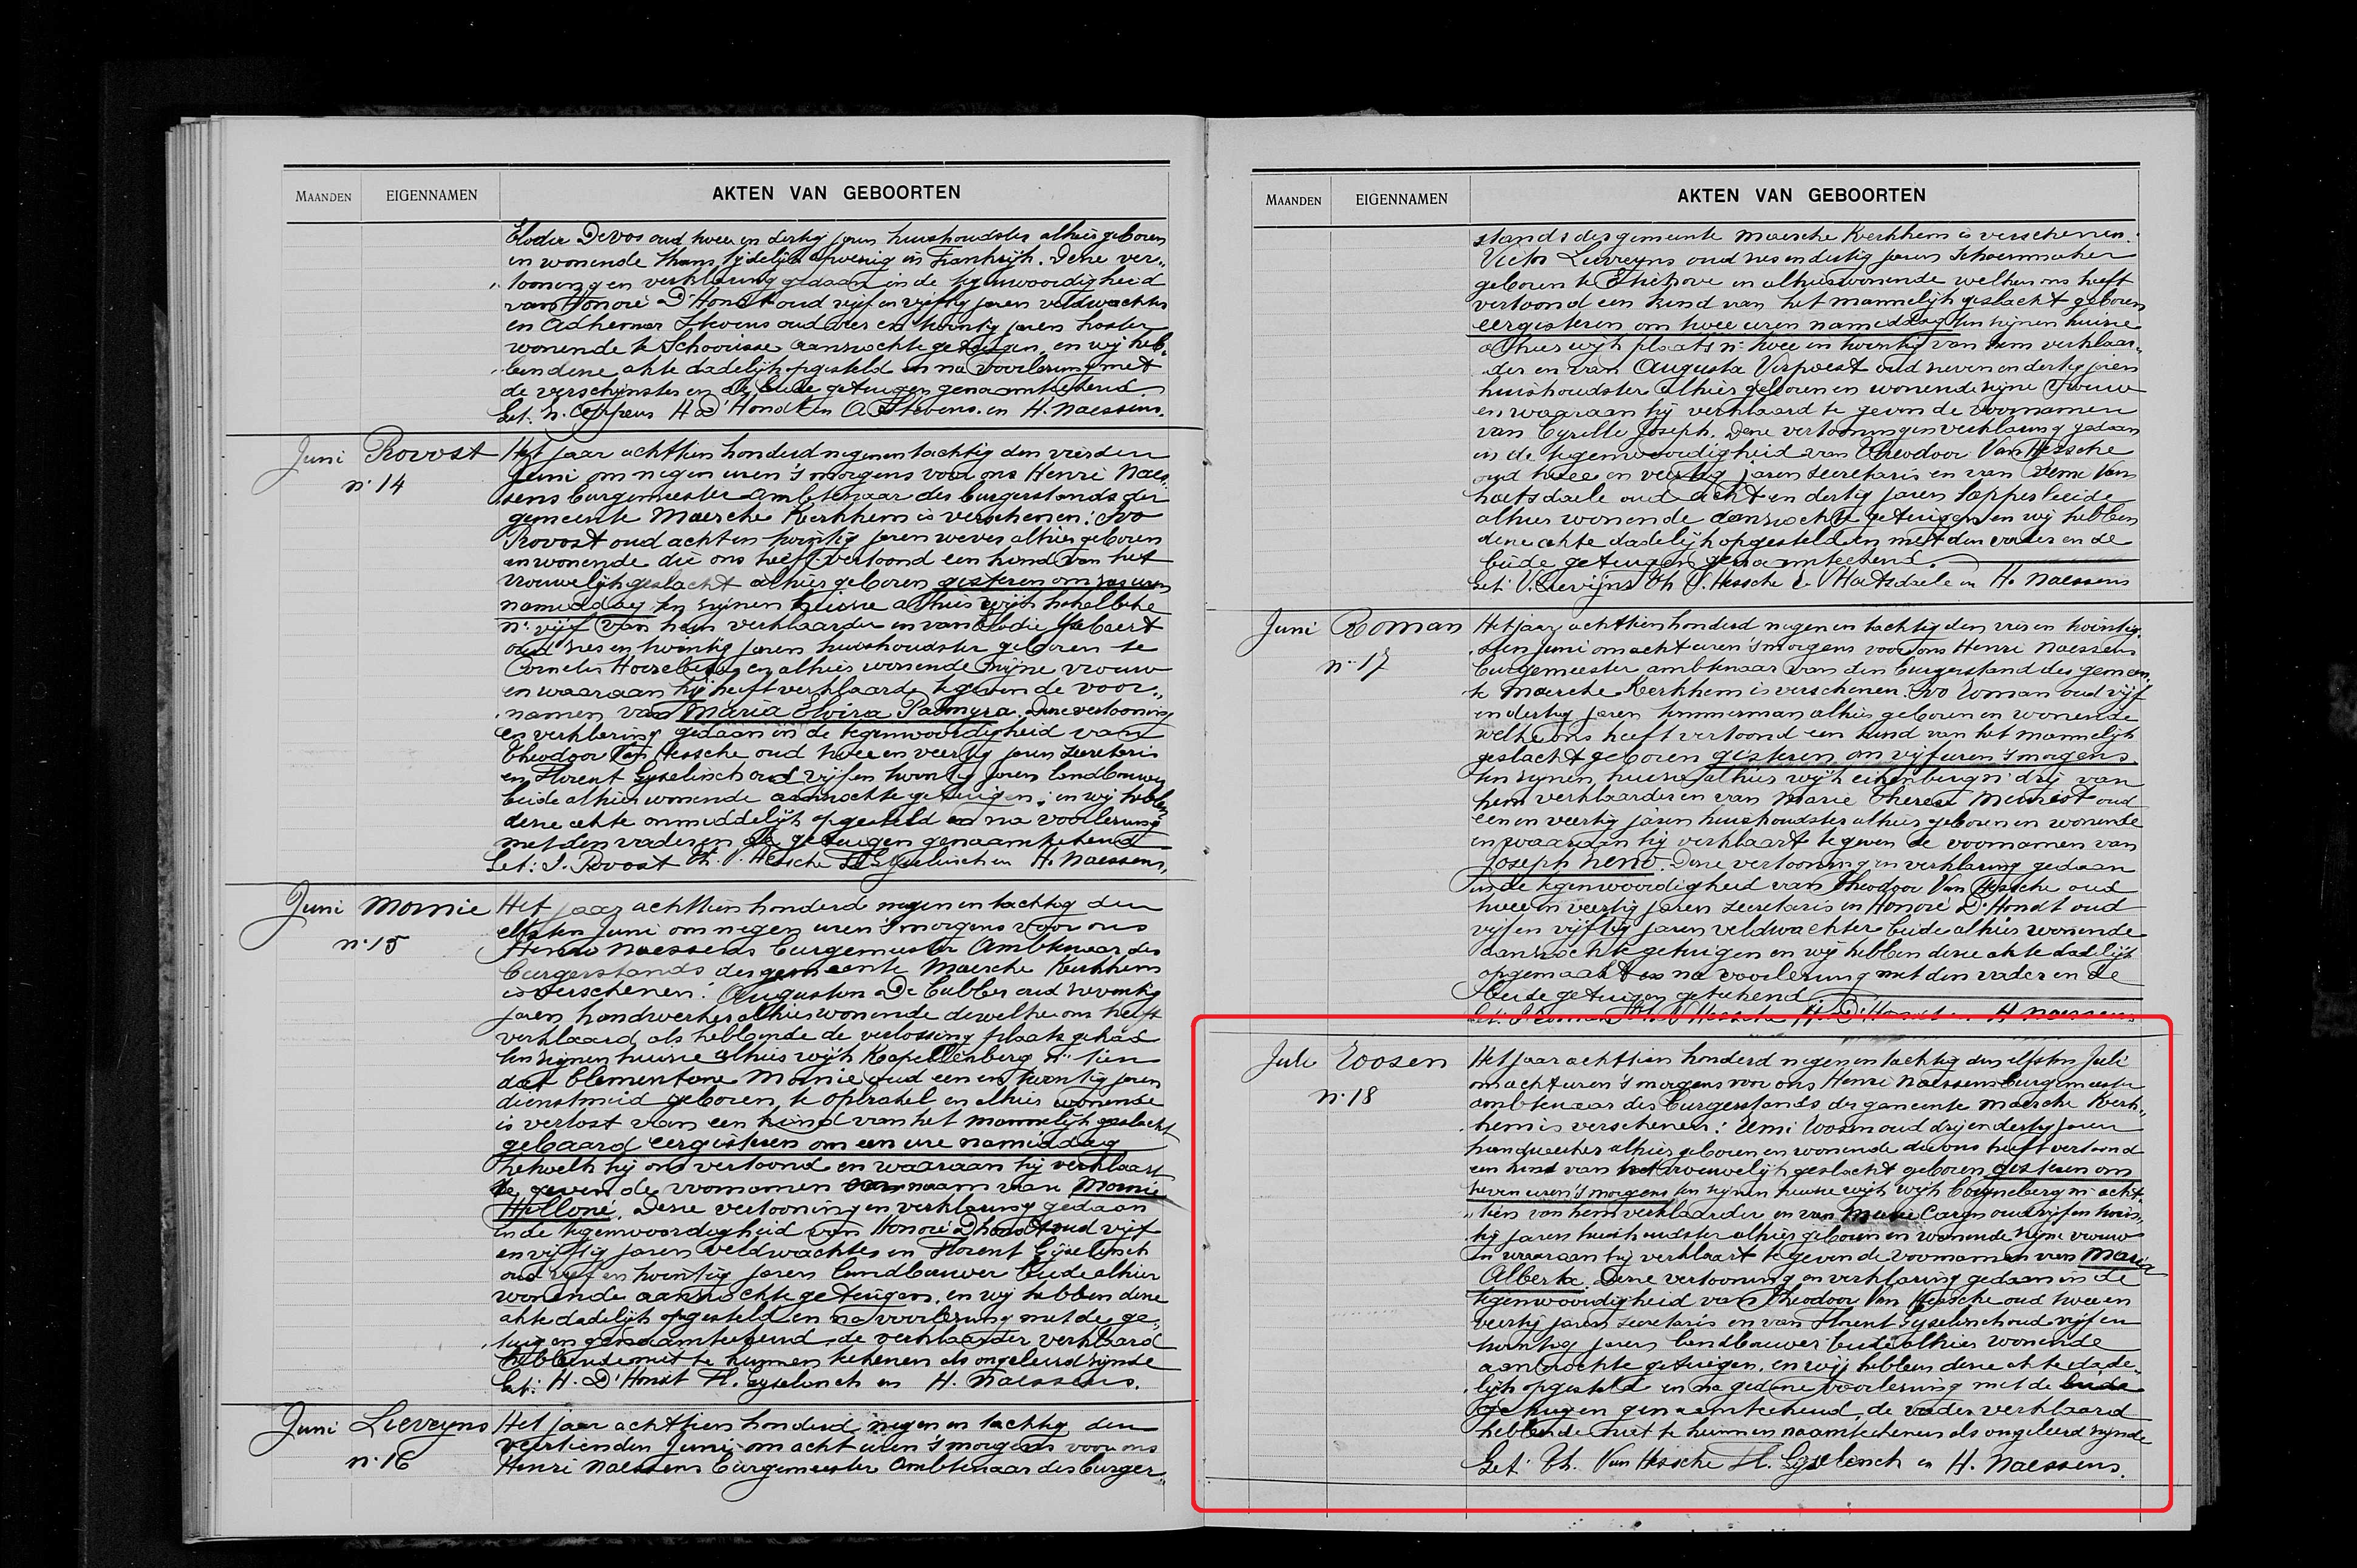 MAANDEN EIGENNAMEN AKTEN VAN GEBOORTEN
Elodie Devos oud twee en dertig jaren huishoudster alhier geboren
en wonende thans tijdelijk afwezig in Frankrijk. Deze ver„
„tooning en verklaring gedaan in de tegenwoordigheid
van Honoré D'Hondt oud vijf en vijftig jaren veldwachter
en Adhemar Stevens oud zes en twintig jaren koster
wonende te Schoorisse aanzochte getuigen, en wij heb„
„ben dene akte dadelijk opgesteld en na voorlezing met
de verschijnster en de beide getuigen genaamteekend.
Get: N. Ceppens H. D'Hondt en A. Stevens en H. Naessens.
Juni Provost Het jaar achttien honderd negen en tachtig den vierden
n: 14 Juni om negen uren 's morgens voor ons Henri Naes„
sens burgemeester ambtenaar des burgerstands der
gemeente Maercke Kerkhem is verschenen: Ivo
Provost oud acht en twintig jaren wever alhier geboren
en wonende die ons heeft vertoond een kind van het
vrouwelijk geslacht alhier geboren gisteren om zes uren
namiddag ten zijnen huize alhier wijk
n: vijf van hem verklaarder en van Elodie Gabaert
oud zes en twintig jaren huishoudster geboren te
Cornelis Hoorebeke en alhier wonende zijne vrouw
en waaraan hij heeft verklaard te geven de voor„
„namen van Maria Elvira Palmyra. Deze vertooning
en verklaring gedaan in de tegenwoordigheid van
Theodoor Van Hessche oud twee en veertig jaren secretaris
en Florent Gyselinck oud vijf en twintig jaren landbouwer
beide alhier wonende aanzochte getuigen; en wij hebben
deze akte onmiddelijk opgesteld en na voorlezing
met den vader en de getuigen genaamteekend
Get: I. Provost Th. V. Hessche Fl. Gyselinck en H. Naessens,
Juni Mornie Het jaar achttien honderd negen en tachtig den
n: 15 elfsten Juni om negen uren 's morgens voor ons
Henri Naessens burgemeester Ambtenaar des
burgerstands der gemeente Maercke Kerkhem
is verschenen: Augustin De Cubber oud zeventig
jaren handwerker alhier wonende dewelke ons heeft
verklaard als hebbende de verlossing plaats gehad
ten zijnen huize alhier wijk Kapellenberg n: tien
dat Clementine Mornie oud een en twintig jaren
dienstmeid geboren te Opbrakel en alhier wonende
is verlost van een kind van het mannelijk geslacht
gebaard eergisteren om een ure namiddag
hetwelk hij ons vertoond en waaraan hij verklaart
te geven de voornamen naam van Mornie
Hilloné. Deze vertooning en verklaring gedaan
in de tegenwoordigheid van Honoré D'hondt oud vijf
en vijftig jaren veldwachter en Florent Gyselinck
oud vijf en twintig jaren landbouwer beide alhier
wonende aanzochte getuigen, en wij hebben deze
akte dadelijk opgesteld en na voorlezing met de ge„
„tuigen genaamteekend, de verklaarder verklaard
hebbende niet te kunnen teekenen als ongeleerd zijnde
Get: H. D'Hondt Fl. Gyselinck en H. Naessens.
Juni Lieveyns Het jaar achttien honderd negen en tachtig den
n: 16 veertienden Juni om acht uren 's morgens voor ons
Henri Naessens burgemeester Ambtenaar des burger„
MAANDEN EIGENNAMEN AKTEN VAN GEBOORTEN
stands der gemeente Maercke Kerkhem is verschenen:
Victor Lieveyns oud zes en dertig jaren schoenmaker
geboren te Etichove en alhier wonende welken ons heeft
vertoond een kind van het mannelijk geslacht geboren
eergisteren om twee uren namiddag ten zijnen huize
alhier wijk plaats n: twee en twintig van hem verklaar„
„der en van Augusta Verpoest oud zeven en dertig jaren
huishoudster alhier geboren en wonende zijne vrouw
en waaraan hij verklaard te geven de voornamen
van Cyrille Joseph. Deze vertooning en verklaring gedaan
in de tegenwoordigheid van Theodoor Van Hessche
oud twee en veertig jaren secretaris en van Remi Van
hoetsdaele oud acht en dertig jaren tapper beide
alhier wonende aanzochte getuigen en wij hebben
deze akte dadelijk opgesteld en met den vader en de
beide getuigen genaamteekend.
Get: V. Lievijns Th. V. Hessche R. VHoetsdaele en H. Naessens
Juni Roman Het jaar achttien honderd negen en tachtig den zes en twintig„
n: 17 „sten Juni om acht uren 's morgens voor ons Henri Naessens
burgemeester ambtenaar van den burgerstand der gemeen„
„te Maercke Kerkhem is verschenen. Ivo Roman oud vijf
en dertig jaren timmerman alhier geboren en wonende
welke ons heeft vertoond een kind van het mannelijk
geslacht geboren gisteren om vijf uren 's morgens
ten zijnen huize alhier wijk eikenberg n: drij van
hem verklaarder en van Marie Therese Meuriest oud
een en veertig jaren huishoudster alhier geboren en wonende
en waaraan hij verklaart te geven de voornamen van
Joseph Remo. Deze vertooning en verklaring gedaan
in de tegenwoordigheid van Theodoor Van Hessche oud
twee en veertig jaren secretaris en Honoré D'Hondt oud
vijf en vijftig jaren veldwachter beide alhier wonende
aanzochte getuigen en wij hebben deze akte dadelijk
opgemaakt en na voorlezing met den vader en de
beide getuigen geteekend.
Get: I Roman Th. V Hessche H. D'Hondt en H Naessens
Juli Roosen Het jaar achttien honderd negen en tachtig den elfsten Juli
n: 18 om acht uren 's morgens voor ons Henri Naessens burgemeester
ambtenaar des burgerstands der gemeente Maercke Kerk„
„hem is verschenen: Remi Roosen oud drij en dertig jaren
handwerker alhier geboren en wonende die ons heeft vertoond
een kind van het vrouwelijk geslacht geboren gisteren om
zeven uren 's morgens ten zijnen huize wijk wijk n: acht„
„tien van hem verklaarder en van Marie Carijn oud vijf en twin„
„tig jaren huishoudster alhier geboren en wonende zijne vrouw
en waaraan hij verklaart te geven de voornamen van Maria
Alberta. Deze vertooning en verklaring gedaan in de
tegenwoordigheid van Theodoor Van Hessche oud twee en
veertig jaren secretaris en van Florent Gyselinck oud vijf en
twintig jaren landbouwer beide alhier wonende
aanzochte getuigen, en wij hebben deze akte dade„
„lijk opgesteld en na gedane voorlezing met de beide
getuigen genaamteekend, de vader verklaard
hebbende niet te kunnen naamteekenen als ongeleerd zijnde
Get: Th. Van Hessche Fl. Gyselinck en H. Naessens.